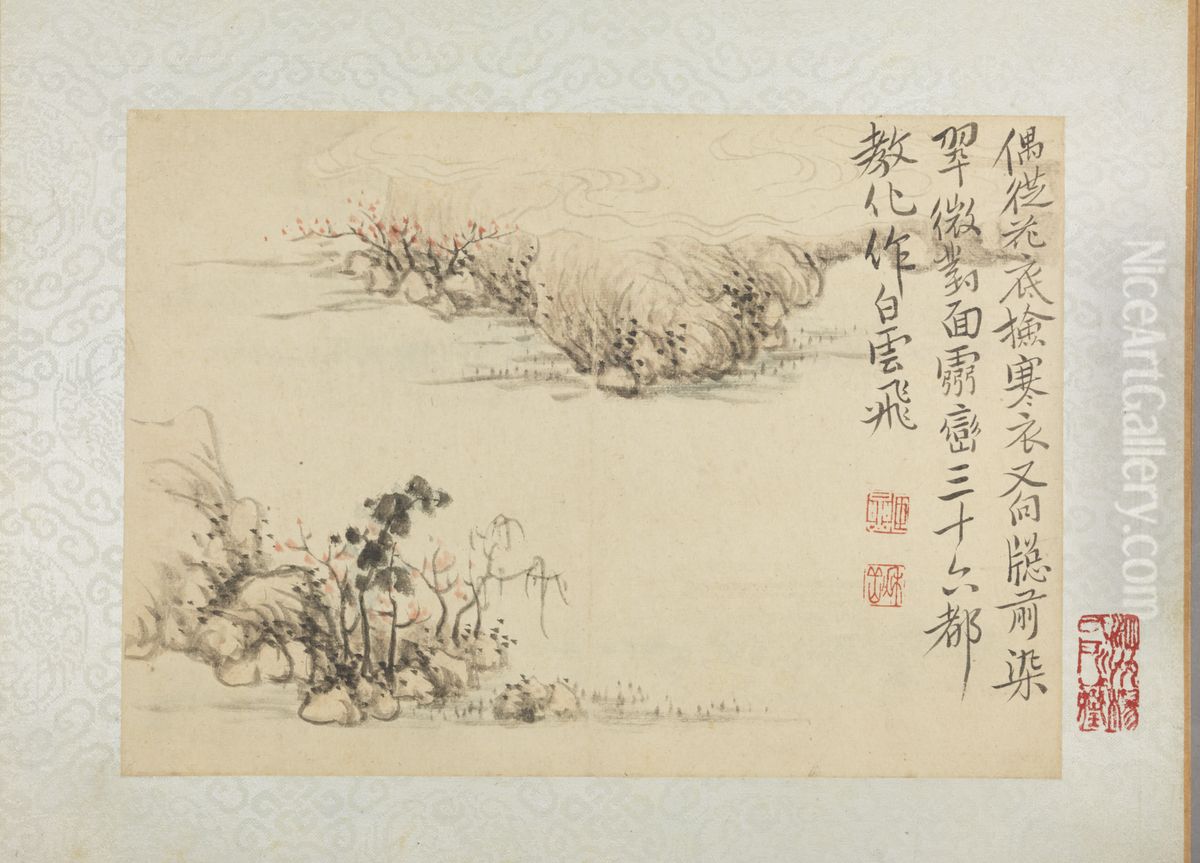 偶從花底撿寒衣又向牕前染
翠微對面靈巒三十六都
教化作白雲飛
NiceArtGallery.com